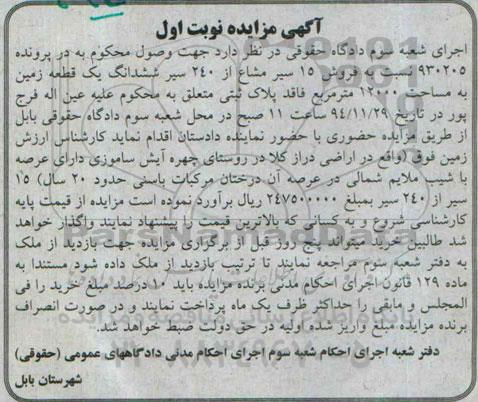 آگهی مزایده نوبت اول
اجرای شعبه سوم دادگاه حقوقی در نظر دارد جهت وصول محکوم به در پرونده
۹۳۰۲۰۵ نسبت به فروش ۱۵ سیر مشاع از ۲۴۰ سیر ششدانگ یک قطعه زمین
به مساحت ۱۲۰۰۰ مترمربع فاقد پلاک ثبتی متعلق به محکوم علیه عین اله فرج
پور در تاریخ ۹۴/۱۱/۲۹ ساعت ۱۱ صبح در محل شعبه سوم دادگاه حقوقی بابل
از طریق مزایده حضوری با حضور نماینده دادستان اقدام نماید کارشناس ارزش
زمین فوق (واقع در اراضی دراز کلا در روستای چهره آیش ساموزی دارای عرصه
با شیب ملایم شمالی در عرصه آن درختان مرکبات باسنی حدود ۲۰ سال) ۱۵
سیر از ۲۴۰ سیر بمبلغ ۲۴۷۵۰۰۰۰۰ ریال برآورد نموده است مزایده از قیمت پایه
کارشناسی شروع و به کسانی که بالاترین قیمت را پیشنهاد نمایند واگذار خواهد
شد طالبین خرید میتواند پنج روز قبل از برگزاری مزایده جهت بازدید از ملک
به دفتر شعبه سوم مراجعه نمایند تا ترتیب بازدید از ملک داده شود مستندا به
ماده ۱۲۹ قانون اجرای احکام مدنی برنده مزایده باید ۱۰ درصد مبلغ خرید را فی
المجلس و مابقی را حداکثر ظرف یک ماه پرداخت نمایند و در صورت انصراف
برنده مزایده مبلغ واریز شده اولیه در حق دولت ضبط خواهد شد.
دفتر شعبه اجرای احکام شعبه سوم اجرای احکام مدنی دادگاههای عمومی (حقوقی)
شهرستان بابل